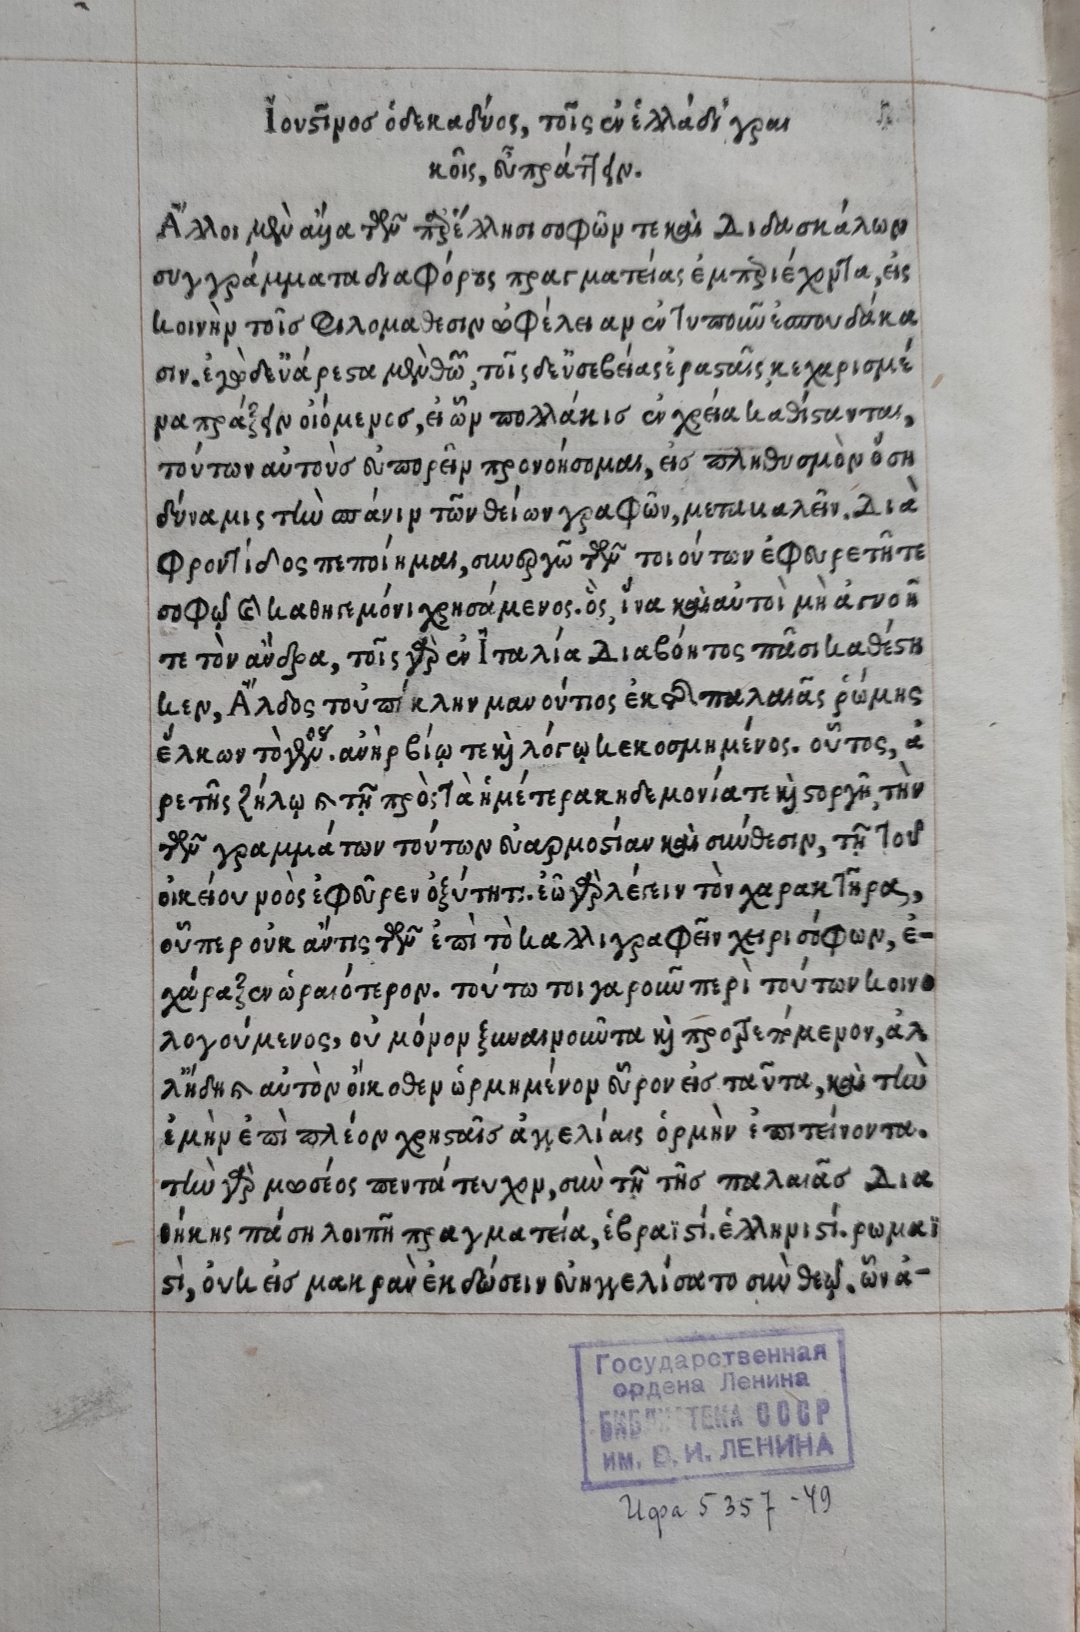 Ἰουστῖνος ὁ δεκαδύος, τοῖς ἐν ἑλλάδι γραι
κοῖς, εὖ πράττειν.
Ἄλλοι μὲν ἄλλα τῶν παρ' ἕλλησι σοφῶν τε καὶ Διδασκάλων
συγγράμματα διαφόρους πραγματείας ἐμπεριέχοντα, εἰς
κοινὴν τοῖσ φιλομαθεσιν ὠφέλειαν ἐντυποῦν ἐσπουδάκα
σιν. ἐγὼ δ' εὐάρεστα μὲν θεῶ, τοῖς δ' εὐσεβείας ἐρασταῖς κεχαρισμέ
να πράξειν οἰόμενοσ, εἰ ὧν πολλάκισ ἐν χρεία καθίσανται,
τούτων αὐτοὺσ εὐπορεῖν προνοήσομαι, εἰσ πληθυσμὸν ὅση
δύναμις τὴν σπάνιν τῶν θείων γραφῶν, μετακαλεῖν. Διὰ
φροντίδος πεποίημαι, συνεργῶ τῶν τοιούτων ἐφευρετῆ τε
σοφῷ καὶ καθηγεμόνι χρησάμενος. ὃς, ἵνα καὶ αὐτοὶ μὴ ἀγνοῆ
τε τὸν ἄνδρα, τοῖς γὰρ ἐν Ἰταλία Διαβόητος πᾶσι καθέστη
κεν, Ἄλδος τοὐπίκλην μανούτιος ἐκ τῆς παλαιᾶς ῥώμης
ἕλκων τὸ γένος. ἀνὴρ βίῳ τε κỳ λόγῳ κεκοσμημένος. οὗτος, ἀ
ρετῆς ζήλῳ καὶ τῇ πρὸς τὰ ἡμέτερα κηδεμονία τε κỳ στοργῆ, τὴν
τῶν γραμμάτων τούτων εὐαρμοστίαν καὶ σύνθεσιν, τῇ τοῦ
οἰκείου νοὸς ἐφεῦρεν ὀξύτητι. ἐῶ γὰρ λέγειν τὸν χαρακτῆρα,
οὗπερ οὐκ ἄν τις τῶν ἐπὶ τὸ καλλιγραφεῖν χειρισόφων, ἐ-
χάραξεν ὡραιότερον. τούτω τοιγαροῦν περὶ τούτων κοινο
λογούμενος, οὐ μόνον ξυναινοῦντα κỳ προτρεπόμενον, ἀλ
λ' ἤδη καὶ αὐτὸν οἴκοθεν ὡρμημένον εὗρον εἰσ ταῦτα, καὶ τὴν
ἐμὴν ἐπὶ πλέον χρησταῖσ ἀγγελίαις ὁρμὴν ἐπιτείνοντα.
τὴν γὰρ μωσέος πεντάτευχον, σὺν τῇ τῆσ παλαιᾶσ Δια
θήκης πάση λοιπῇ πραγματεία, ἑβραϊστί. ἑλληνιστί. ρωμαϊ
στὶ, οὐκ εἰσ μακρὰν ἐκδώσειν εὐηγγελίσατο σὺν θεῷ. ὧν ἀ-
Государственная
ордена Ленина
БИБЛИОТЕКА СССР
им. В. И. ЛЕНИНА
Ифа 5357-49